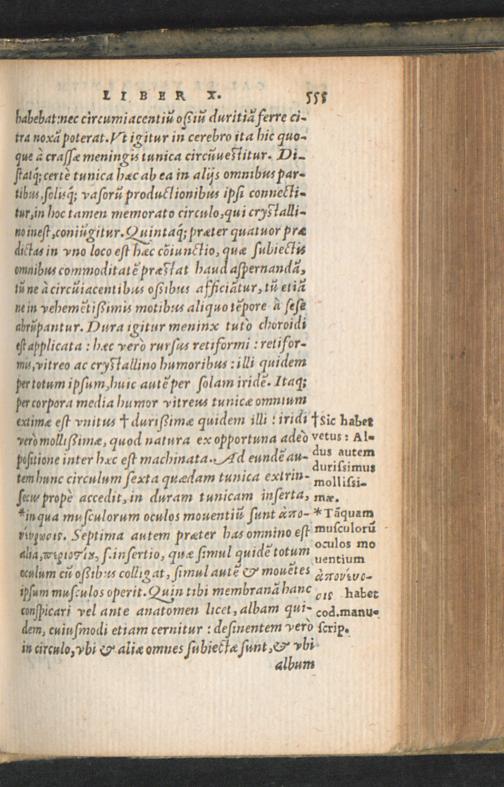 LIBER X. 555
habebat: nec circumiacentiũ oßiũ duritiã ferre ci-
tra noxã poterat. Vt igitur in cerebro ita hic quo-
que à crassæ meningis tunica circũuestitur. Di-
statq; certè tunica hæc ab ea in alijs omnibus par-
tibus, solisq; vasorũ productionibus ipsi connecti-
tur, in hoc tamen memorato circulo, qui crystalli-
no inest, coniũgitur. Quintaq; præter quatuor præ
dictas in vno loco est hæc cõiunctio, quæ subiectis
omnibus commoditatẽ præstat haud aspernandã,
tũ ne à circũiacentibus oßibus afficiãtur, tũ etiã
ne in vehemẽtißimis motibus aliquo tẽpore à sese
abrũpantur. Dura igitur meninx tutò choroidi
est applicata: hæc verò rursus retiformi: retifor-
mis, vitreo ac crystallino humoribus: illi quidem
per totum ipsum, huic autẽ per solam iridẽ. Itaq;
per corpora media humor vitreus tunicæ omnium
extimæ est vnitus † durißimæ quidem illi: iridi
verò mollißimæ, quod natura ex opportuna adeò
positione inter hæc est machinata. Ad eundẽ au-
tem hunc circulum sexta quædam tunica extrin-
secus propè accedit, in duram tunicam inserta,
* in qua musculorum oculos mouentiũ sunt ἀπο-
νεύρωσις. Septima autem præter has omnino est
alia, περιοστιν, s. insertio, quæ simul quidẽ totum
oculum cũ oßibus colligat, simul autẽ & mouẽtes
ipsum musculos operit. Quin tibi membranã hanc
conspicari vel ante anatomen licet, albam qui-
dem, cuiusmodi etiam cernitur: desinentem verò
in circulo, vbi & aliæ omnes subiectæ sunt, & vbi
album
† Sic habet
vetus: Al-
dus autem
durissimus
mollissi-
mæ.
* Tãquam
musculorũ
oculos mo
uentium
ἀπονευρω-
σις habet
cod. manu-
scrip.